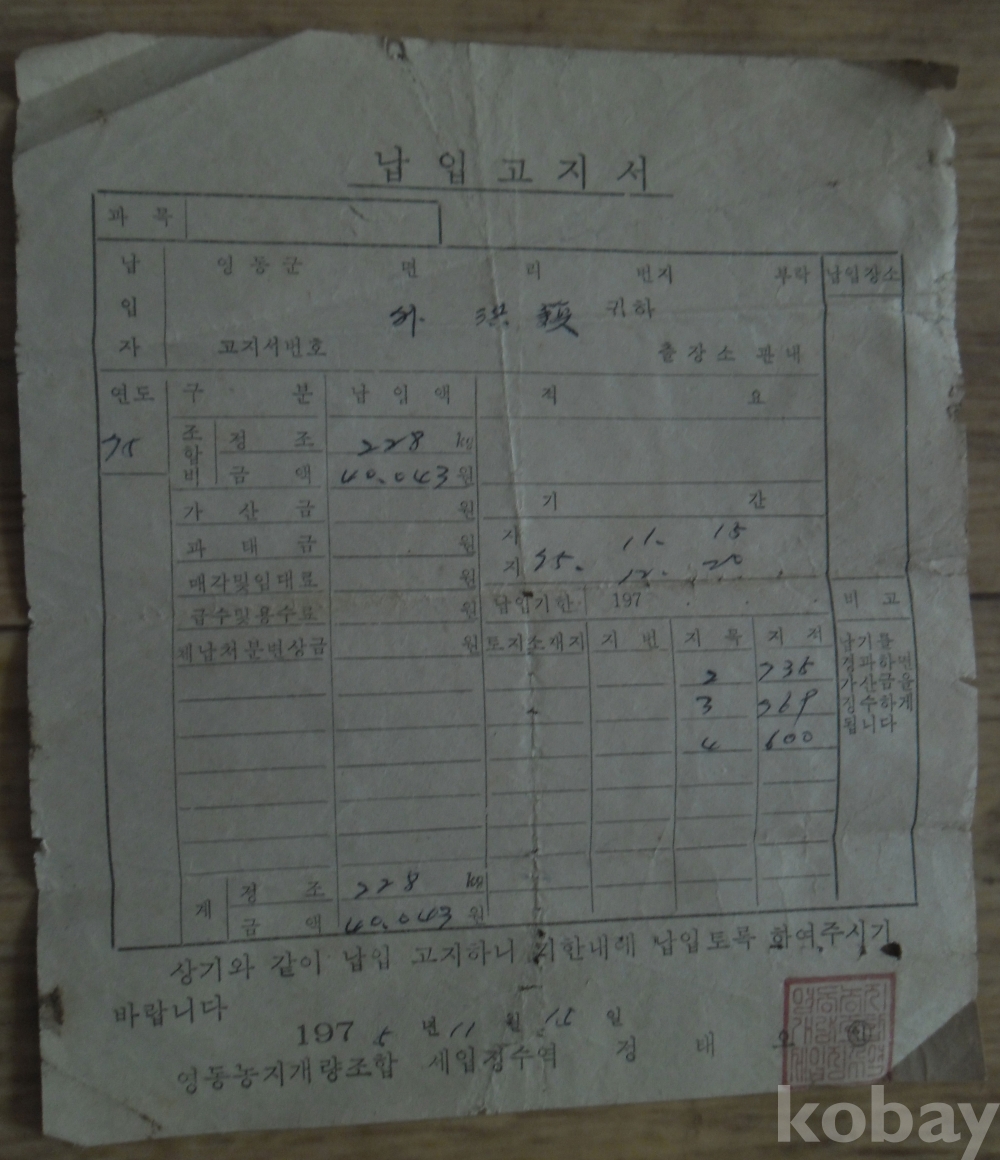 납입고지서
과목
납입자 영동군 면 리 번지 부락 납입장소
洪 귀하
고지서번호 출장소 관내
연도 구분 납입액 적요
75 조합비 정조 228 kg
금액 40.043 원
가산금 원 기간
과태금 원 자 75. 11. 15
매각및임대료 원 지 12. 20
급수및용수료 원 납입기한 197 . . . 비고
체납처분변상금 원 토지소재지 지번 지목 지적
2 735
3 369
4 600
납기를
경과하면
가산금을
징수하게
됩니다
계 정조 228 kg
금액 40.043 원
상기와 같이 납입 고지하니 기한내에 납입토록 하여주시기
바랍니다
1975년 11월 15일
영동농지개량조합 세입징수역 정태
kobay